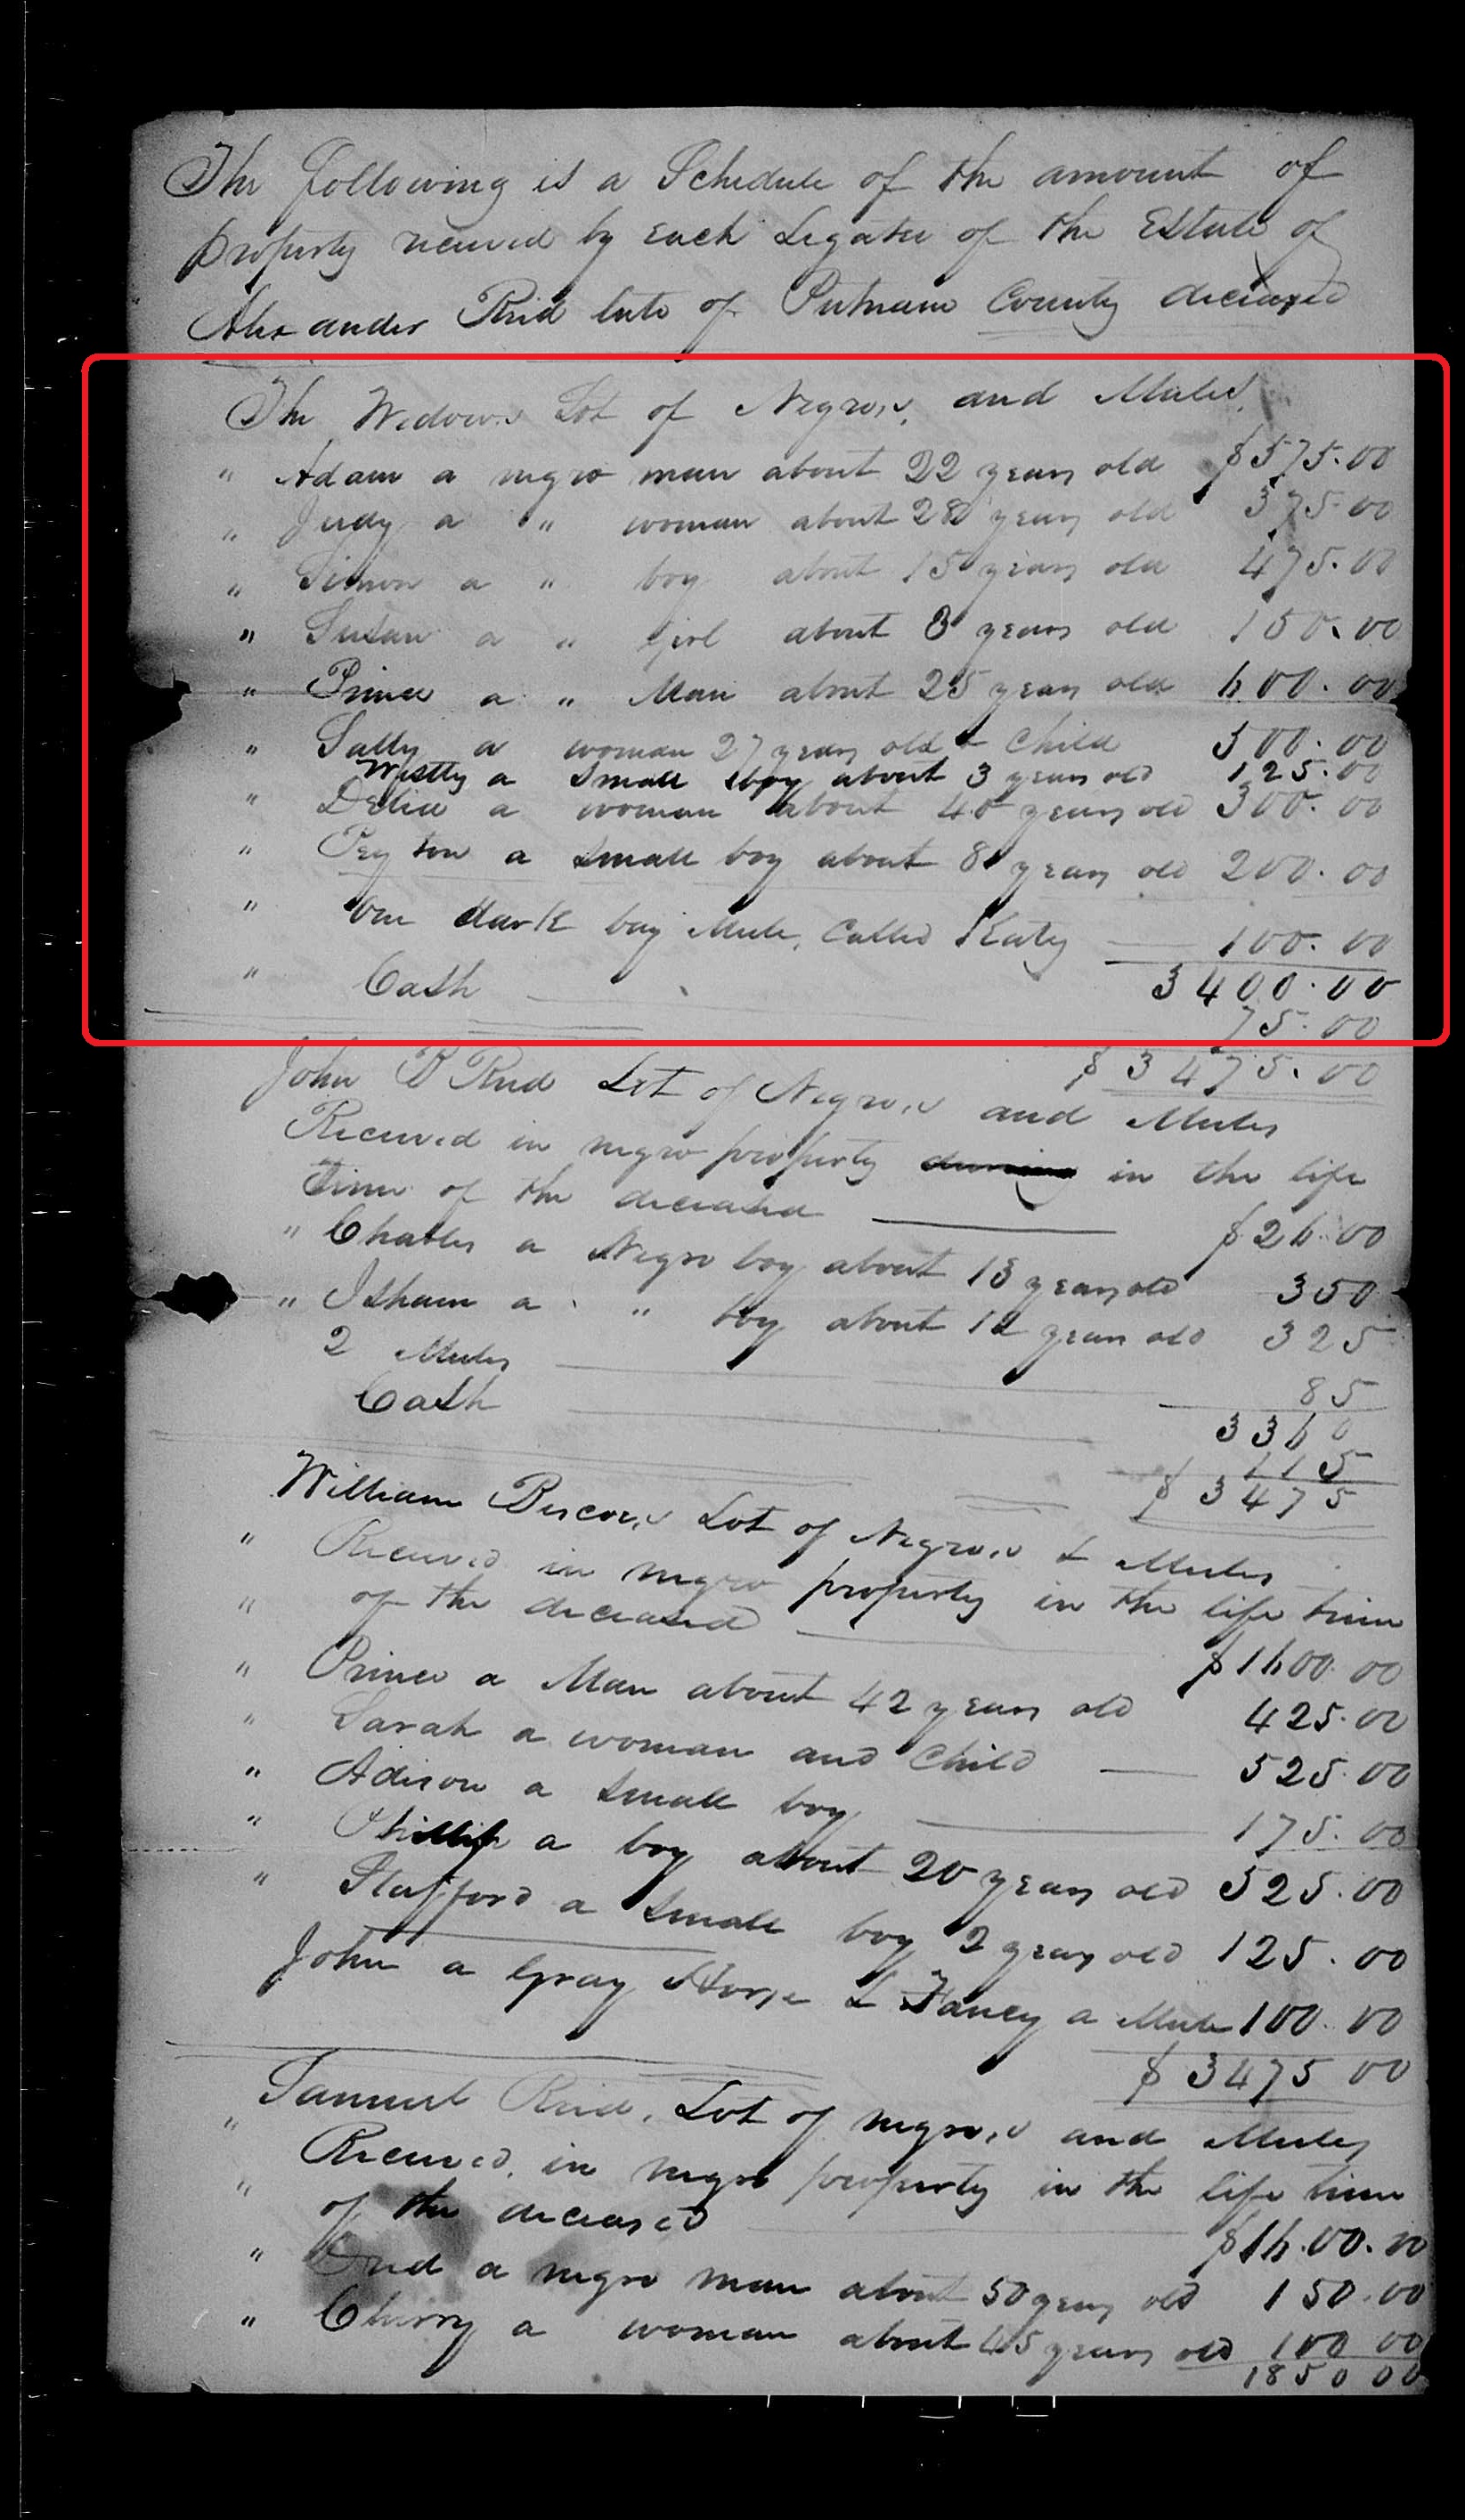 The following is a Schedule of the amount of
property received by each Legatee of the Estate of
Alexander Reid late of Putnam County deceased
The Widows Lot of Negroes, and Mules,
" Adam a negro man about 22 years old $575.00
" Judy a " woman about 28 years old 375.00
" Simon a " boy about 15 years old 475.00
" Susan a " Girl about 8 years old 150.00
" Prince a " Man about 25 years old 600.00
" Sally a woman 27 years old & Child 500.00
Westly a Small boy about 3 years old 125.00
" Delia a woman about 40 years old 300.00
" Peyton a small boy about 8 years old 200.00
" One dark bay Mule, Called Katy 100.00
3400.00
" Cash 75.00
$3475.00
John B Reid Lot of Negroes and Mules
Received in negro property in the life
time of the deceased $26.00
" Charles a Negro boy about 13 years old 350
" Isham a " boy about 12 years old 325
2 Mules 85
3360
Cash 115
$3475
William Biscoes Lot of Negroes & Mules
" Received in negro property in the life time
" of the deceased $1600.00
" Prince a Man about 42 years old 425.00
" Sarah a woman and Child 525.00
" Adison a small boy 175.00
" Phillip a boy about 20 years old 525.00
" Stafford a small boy 2 years old 125.00
John a Gray Horse & Fancy a Mule 100.00
$3475 00
Samuel Reid, Lot of negroes and Mules
" Received, in negro property in the life time
" of the deceased $16.00.00
" a negro man about 50 years old 150.00
" Cherry a woman about 45 years old 100 00
1850 00